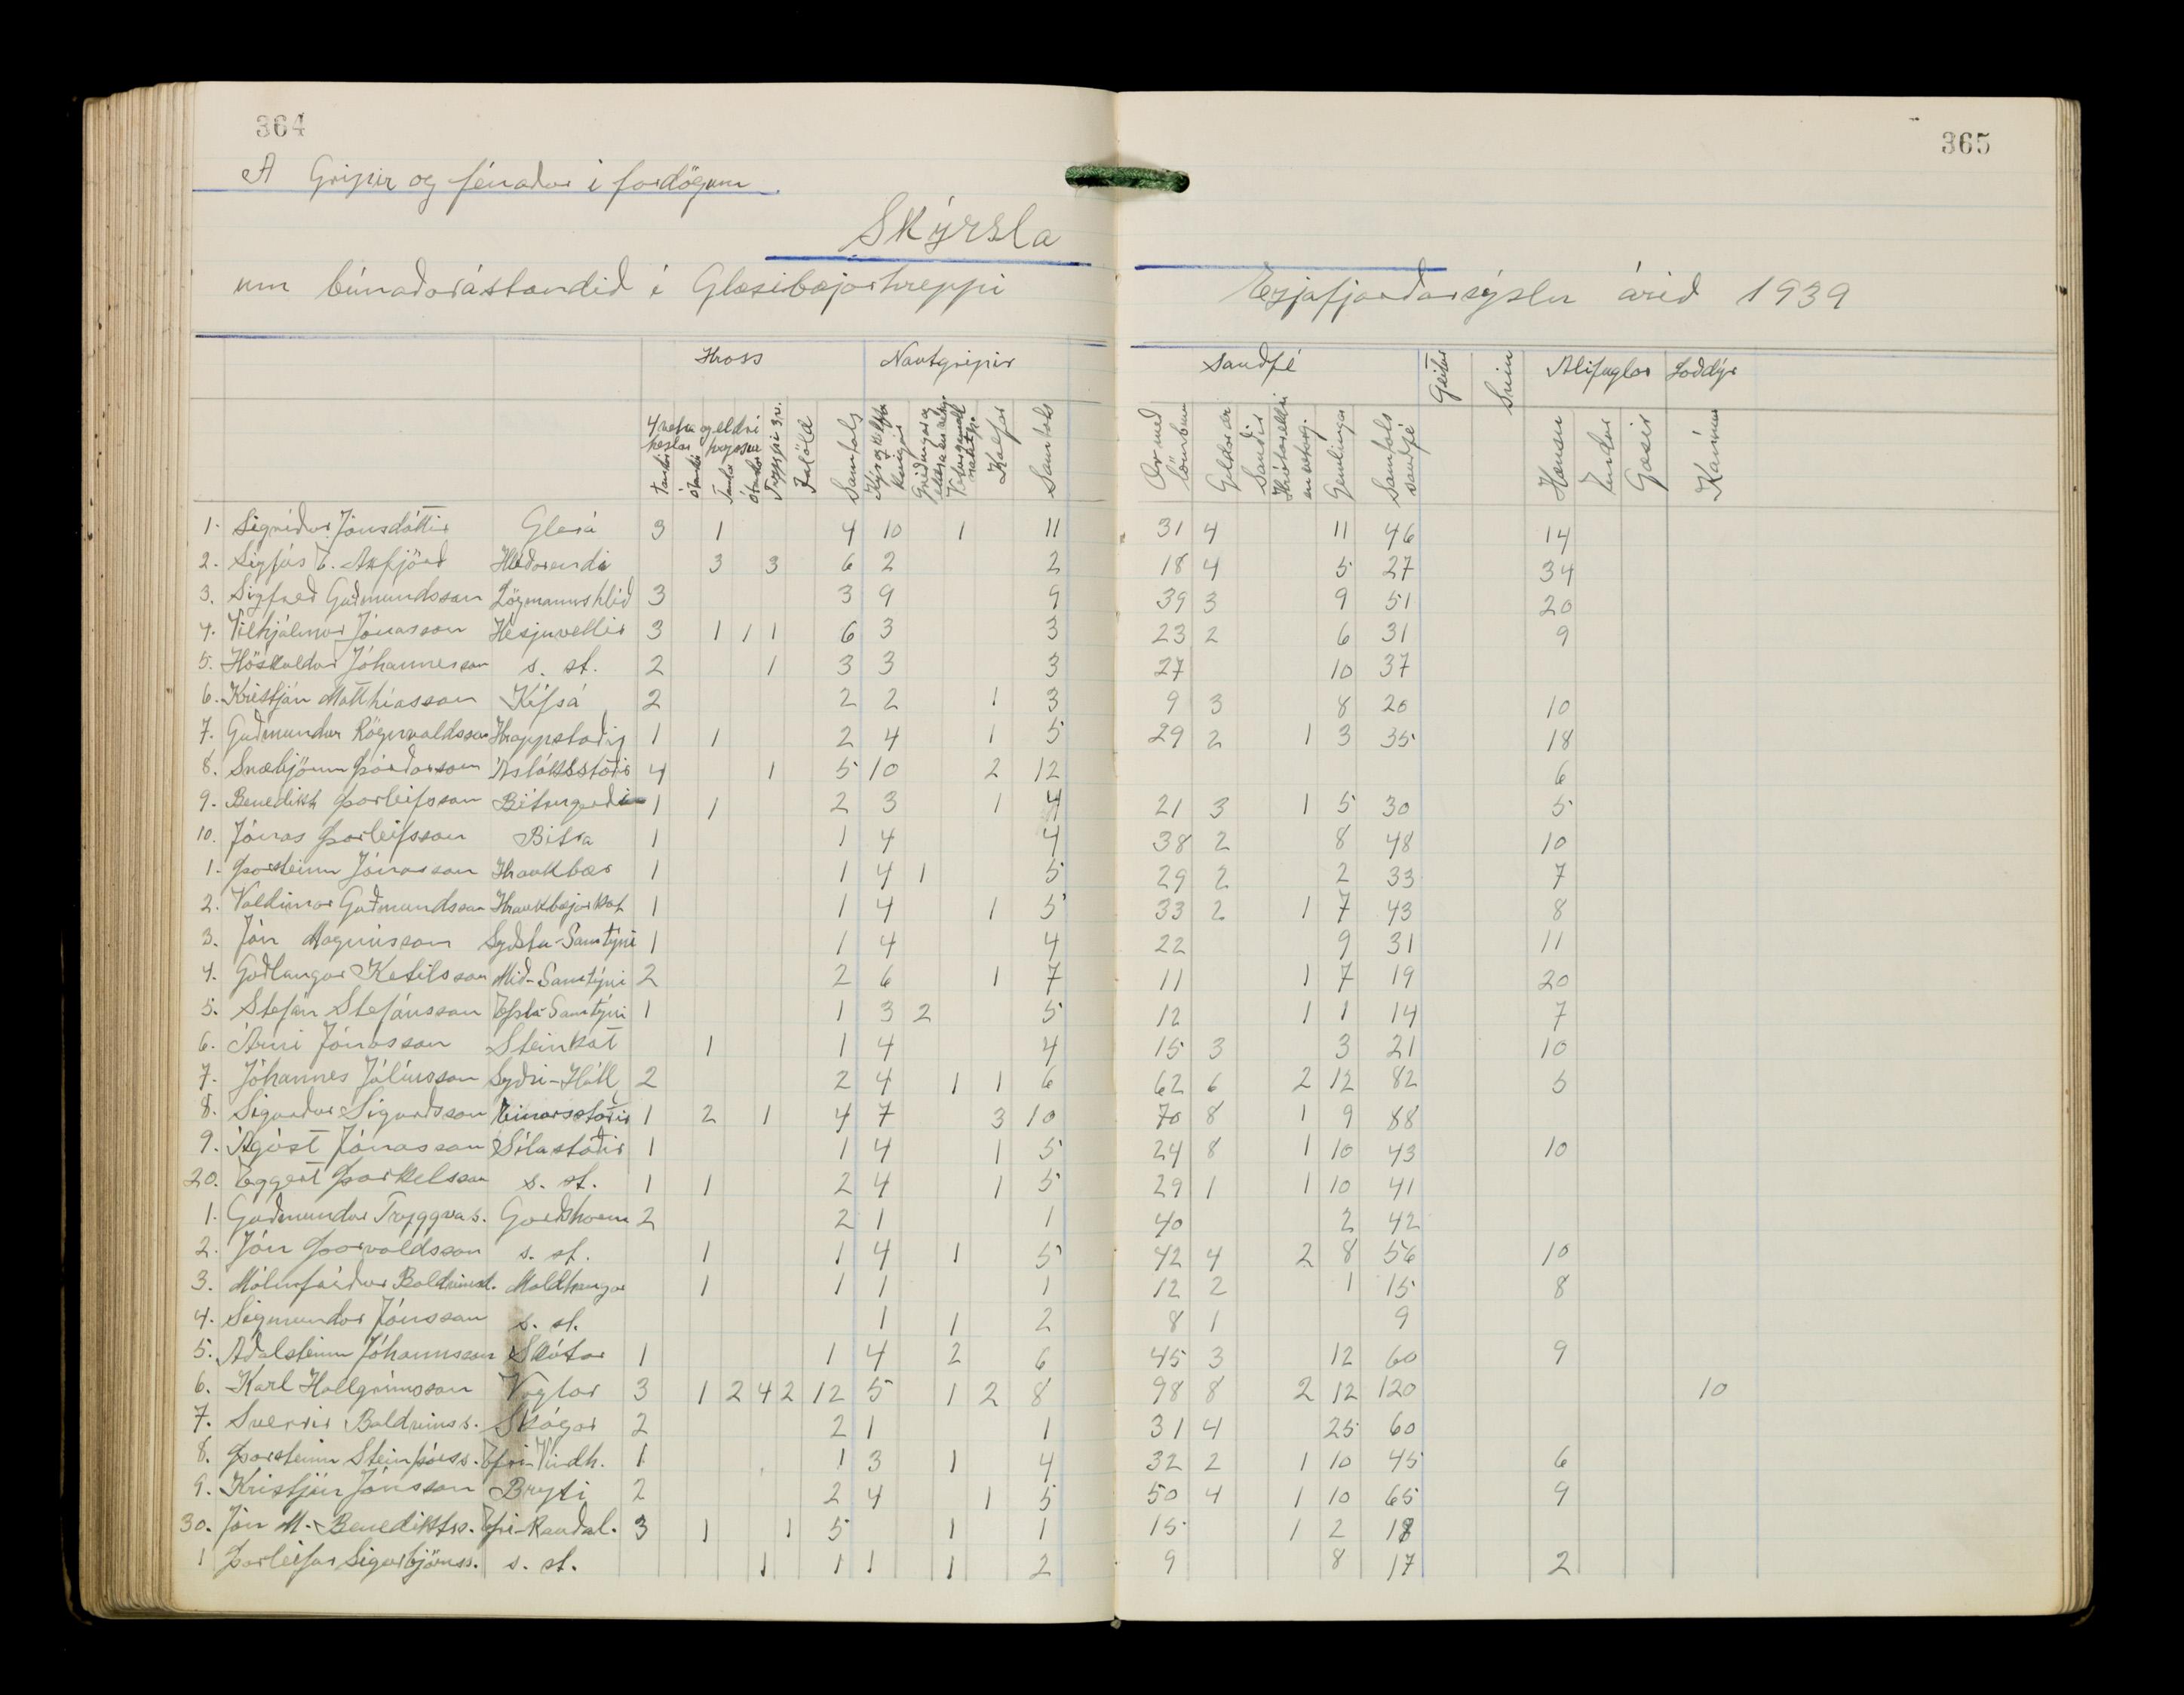 364
365
A Gripir og fénaður í fardögum
Skýrsla
um búnaðarástandið í Glæsibæjarhreppi Eyjafjarðarsýslu árið 1939
Hross Nautgripir Sauðfé Geitur Svín Alifuglar Loðdýr
4 vetra og eldri
hestar hryssur
Tamdir Ótamdir Tamdar Ótamdar Tryppi 1-3 v. Folöld Samtals Kýr og kelfdar kvígur Kálfar Samtals Ær með lömbum Geldar ær Sauðir Hrútar eldri en veturg. Gemlingar Samtals sauðfé Hænsn Endur Gæsir Kanínur
1. Sigríður Jónsdóttir Glerá 3 1 4 10 1 11 31 4 11 46 14
2. Sigfús E. Axfjörð Hlíðarendi 3 3 6 2 2 18 4 5 27 34
3. Sigfreð Guðmundsson Lögmannshlíð 3 3 9 9 39 3 9 51 20
4. Vilhjálmur Jónasson Hesjuvellir 3 1 1 1 6 3 3 23 2 6 31 9
5. Höskuldur Jóhannesson s. st. 2 1 3 3 3 27 10 37
6. Kristján Matthíasson Kífsá 2 2 2 1 3 9 3 8 20 10
7. Guðmundur Rögnvaldsson Hrappstaðir 1 1 2 4 1 5 29 2 1 3 35 18
8. Snæbjörn Þórðarson Ásláksstaðir 4 1 5 10 2 12 6
9. Benedikt Þorleifsson Bitrugerði 1 1 2 3 1 4 21 3 1 5 30 5
10. Jónas Þorleifsson Bitra 1 1 4 4 38 2 8 48 10
1. Þorsteinn Jónasson Hraukbær 1 1 4 1 5 29 2 2 33 7
2. Valdimar Guðmundsson Hraukbæjarkot 1 1 4 1 5 33 2 1 7 43 8
3. Jón Magnússon Syðsta-Samtýni 1 1 4 4 22 9 31 11
4. Guðlaugur Ketilsson Mið-Samtýni 2 2 6 1 7 11 1 7 19 20
5. Stefán Stefánsson Efsta-Samtýni 1 1 3 2 5 12 1 1 14 7
6. Árni Jónasson Steinkot 1 1 4 4 15 3 3 21 10
7. Jóhannes Júlíusson Syðri-Hóll 2 2 4 1 1 6 62 6 2 12 82 5
8. Sigurður Sigurðsson Einarsstaðir 1 2 1 4 7 3 10 70 8 1 9 88
9. Ágúst Jónasson Sílastaðir 1 1 4 1 5 24 8 1 10 43 10
20. Eggert Þorkelsson s. st. 1 1 2 4 1 5 29 1 1 10 41
1. Guðmundur Tryggvas. Garðshorn 2 2 1 1 40 2 42
2. Jón Þorvaldsson s. st. 1 1 4 1 5 42 4 2 8 56 10
3. Málmfríður Baldvinsd. Moldhaugar 1 1 1 1 12 2 1 15 8
4. Sigmundur Jónsson s. st. 1 1 2 8 1 9
5. Aðalsteinn Jóhannsson Skútar 1 1 4 2 6 45 3 12 60 9
6. Karl Hallgrímsson Vaglar 3 1 2 4 2 12 5 1 2 8 98 8 2 12 120 10
7. Sverrir Baldvinss. Skógar 2 2 1 1 31 4 25 60
8. Þorsteinn Steinþórss. Efri-Vindh. 1 1 3 1 4 32 2 1 10 45 6
9. Kristján Jónsson Bryti 2 2 4 1 5 50 4 1 10 65 9
30. Jón M. Benediktss. Efri-Rauðal. 3 1 1 5 1 1 15 1 2 18
1 Þorleifur Sigurbjörnss. s. st. 1 1 1 1 2 9 8 17 2